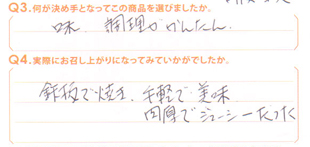 Q3.何が決め手となってこの商品を選びましたか。
味、調理がかんたん、
Q4.実際にお召し上がりになってみていかがでしたか。
鉄板で焼き、手軽で美味
肉厚でジューシーだった